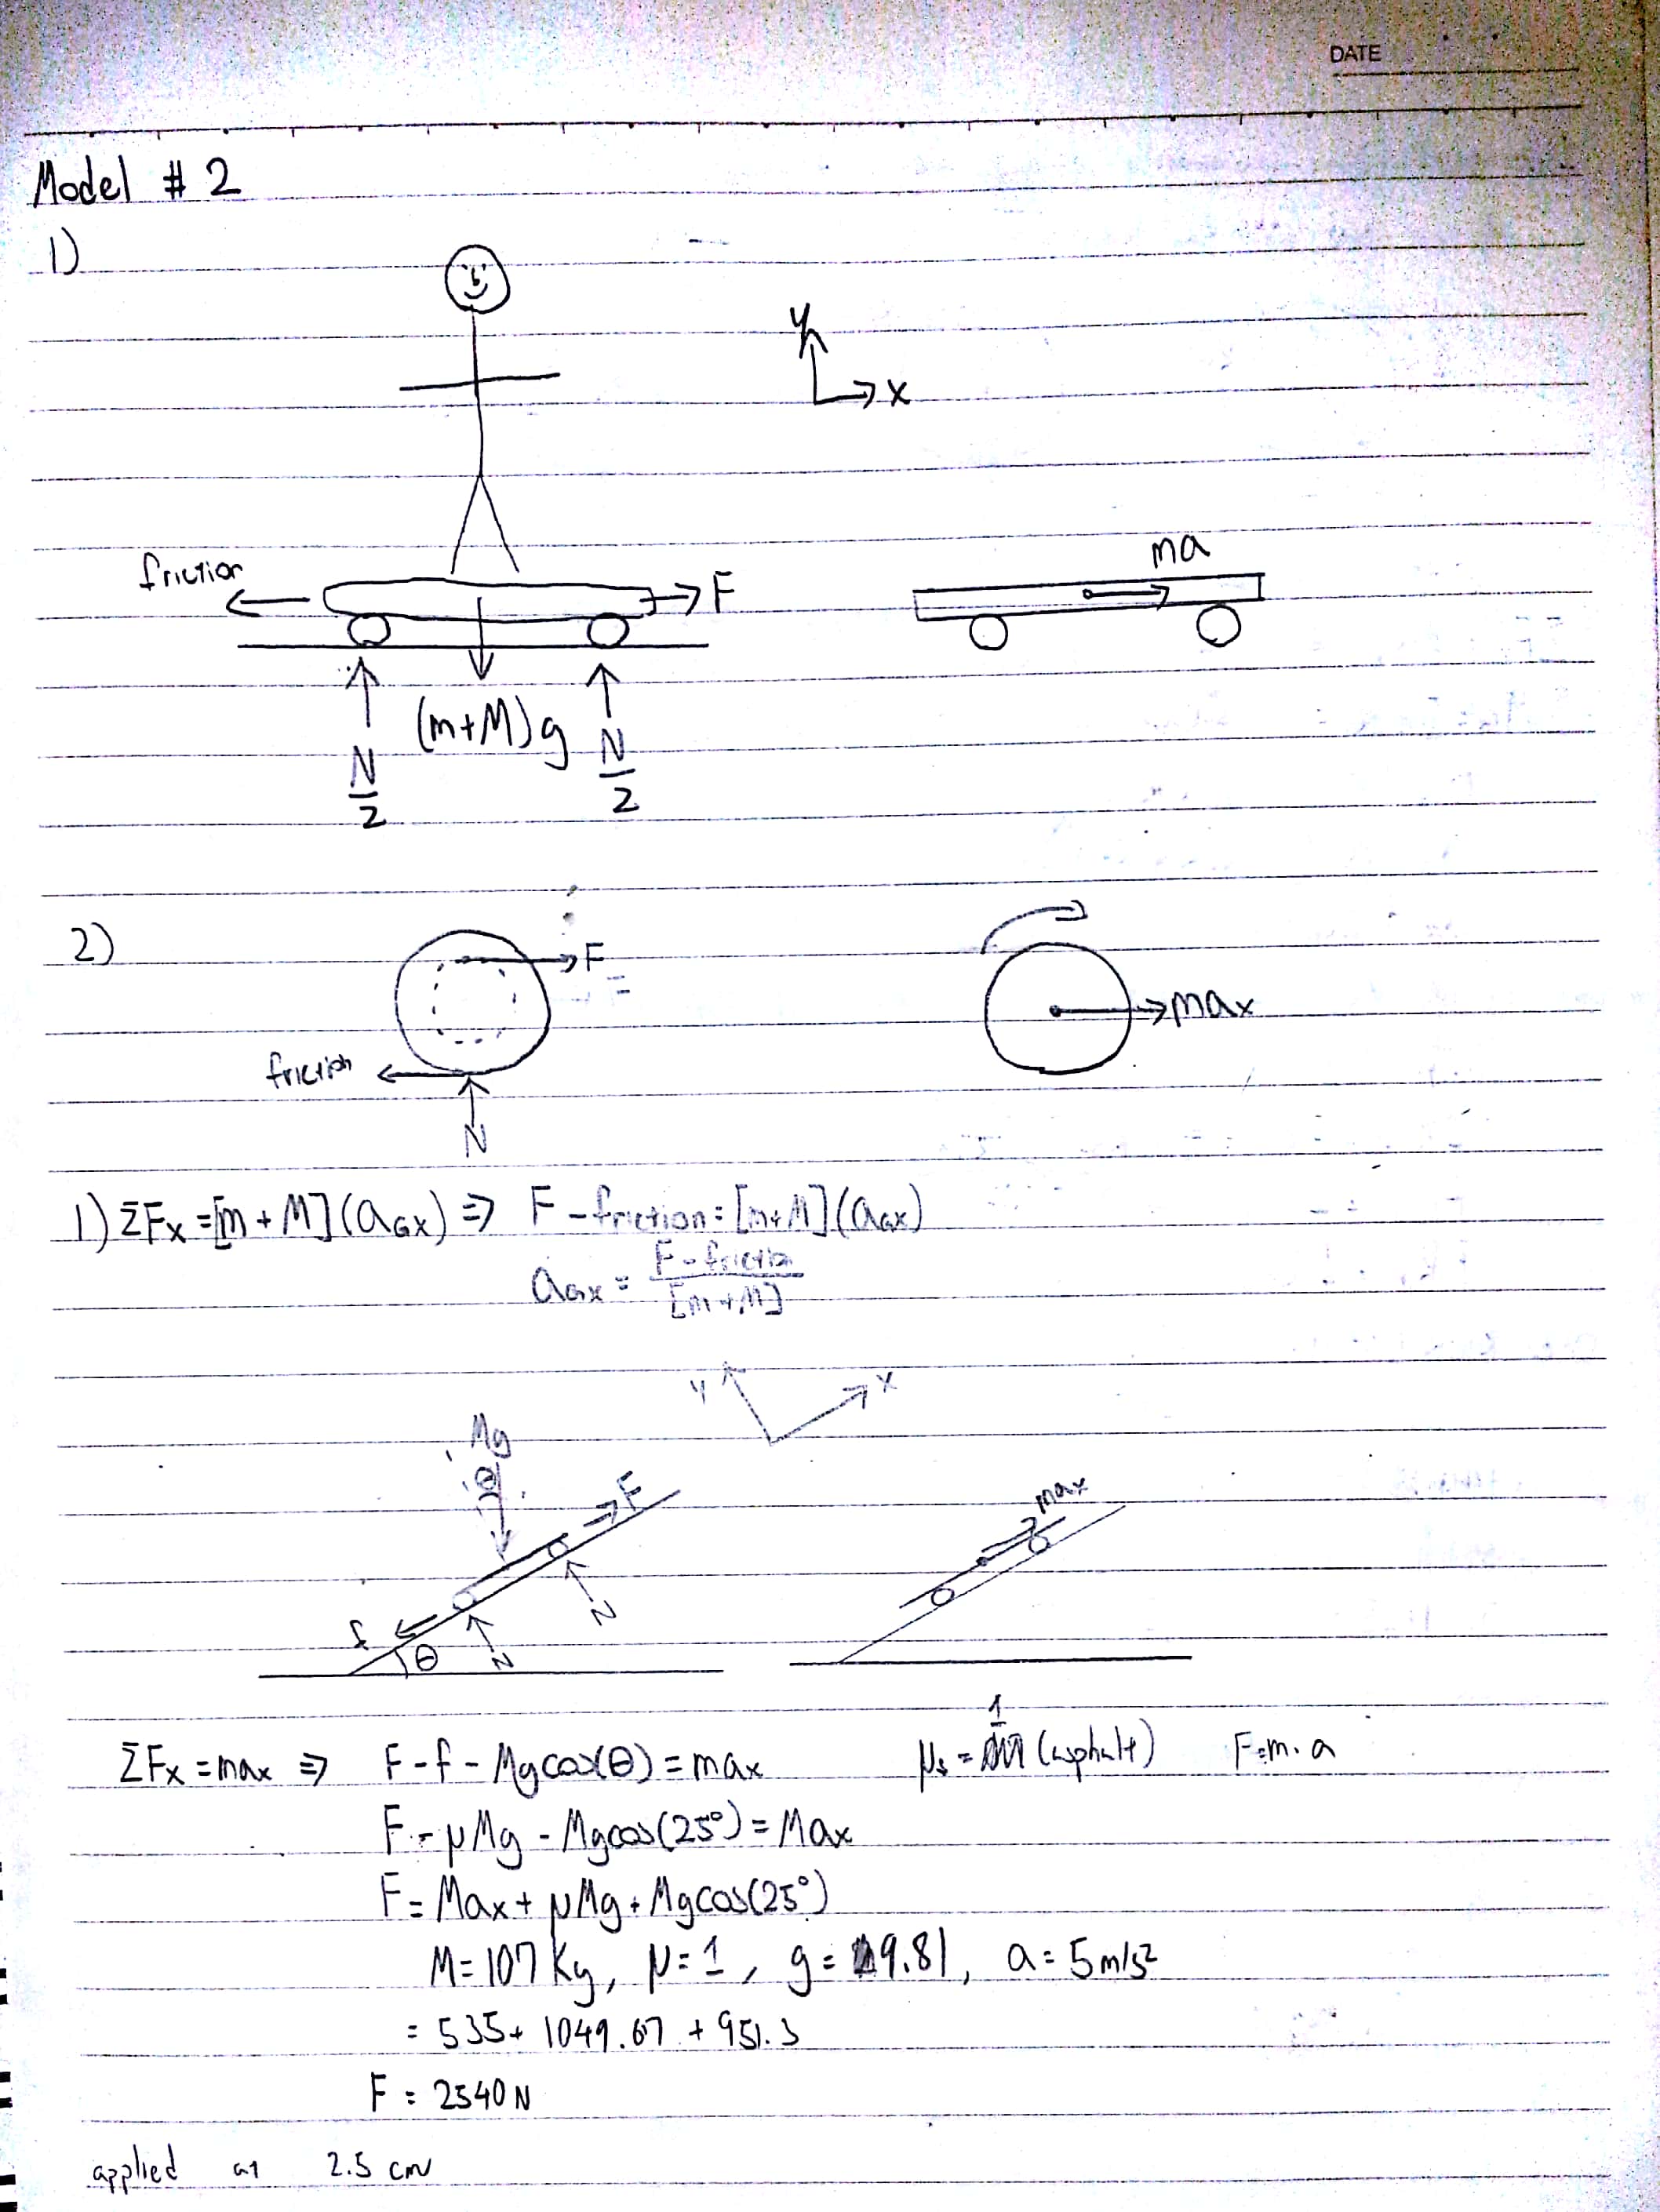 DATE
Model # 2
1)
y
x
friction
F
ma
(m+M)g
N/2
N/2
2)
F
friction
N
max
1) ΣFx = [m + M](aGx) ⇒ F - friction = [m+M](aGx)
aGx = F - friction / [m+M]
y
x
Mg
θ
F
max
f
θ
N
N
ΣFx = max ⇒ F - f - Mgcos(θ) = max
μs = 1 (asphalt) F=m.a
F - μMg - Mgcos(25°) = Max
F = Max + μMg + Mgcos(25°)
M = 107 Kg, μ = 1, g = 9.81, a = 5 m/s²
= 535 + 1049.67 + 951.3
F = 2540 N
applied at 2.5 cm